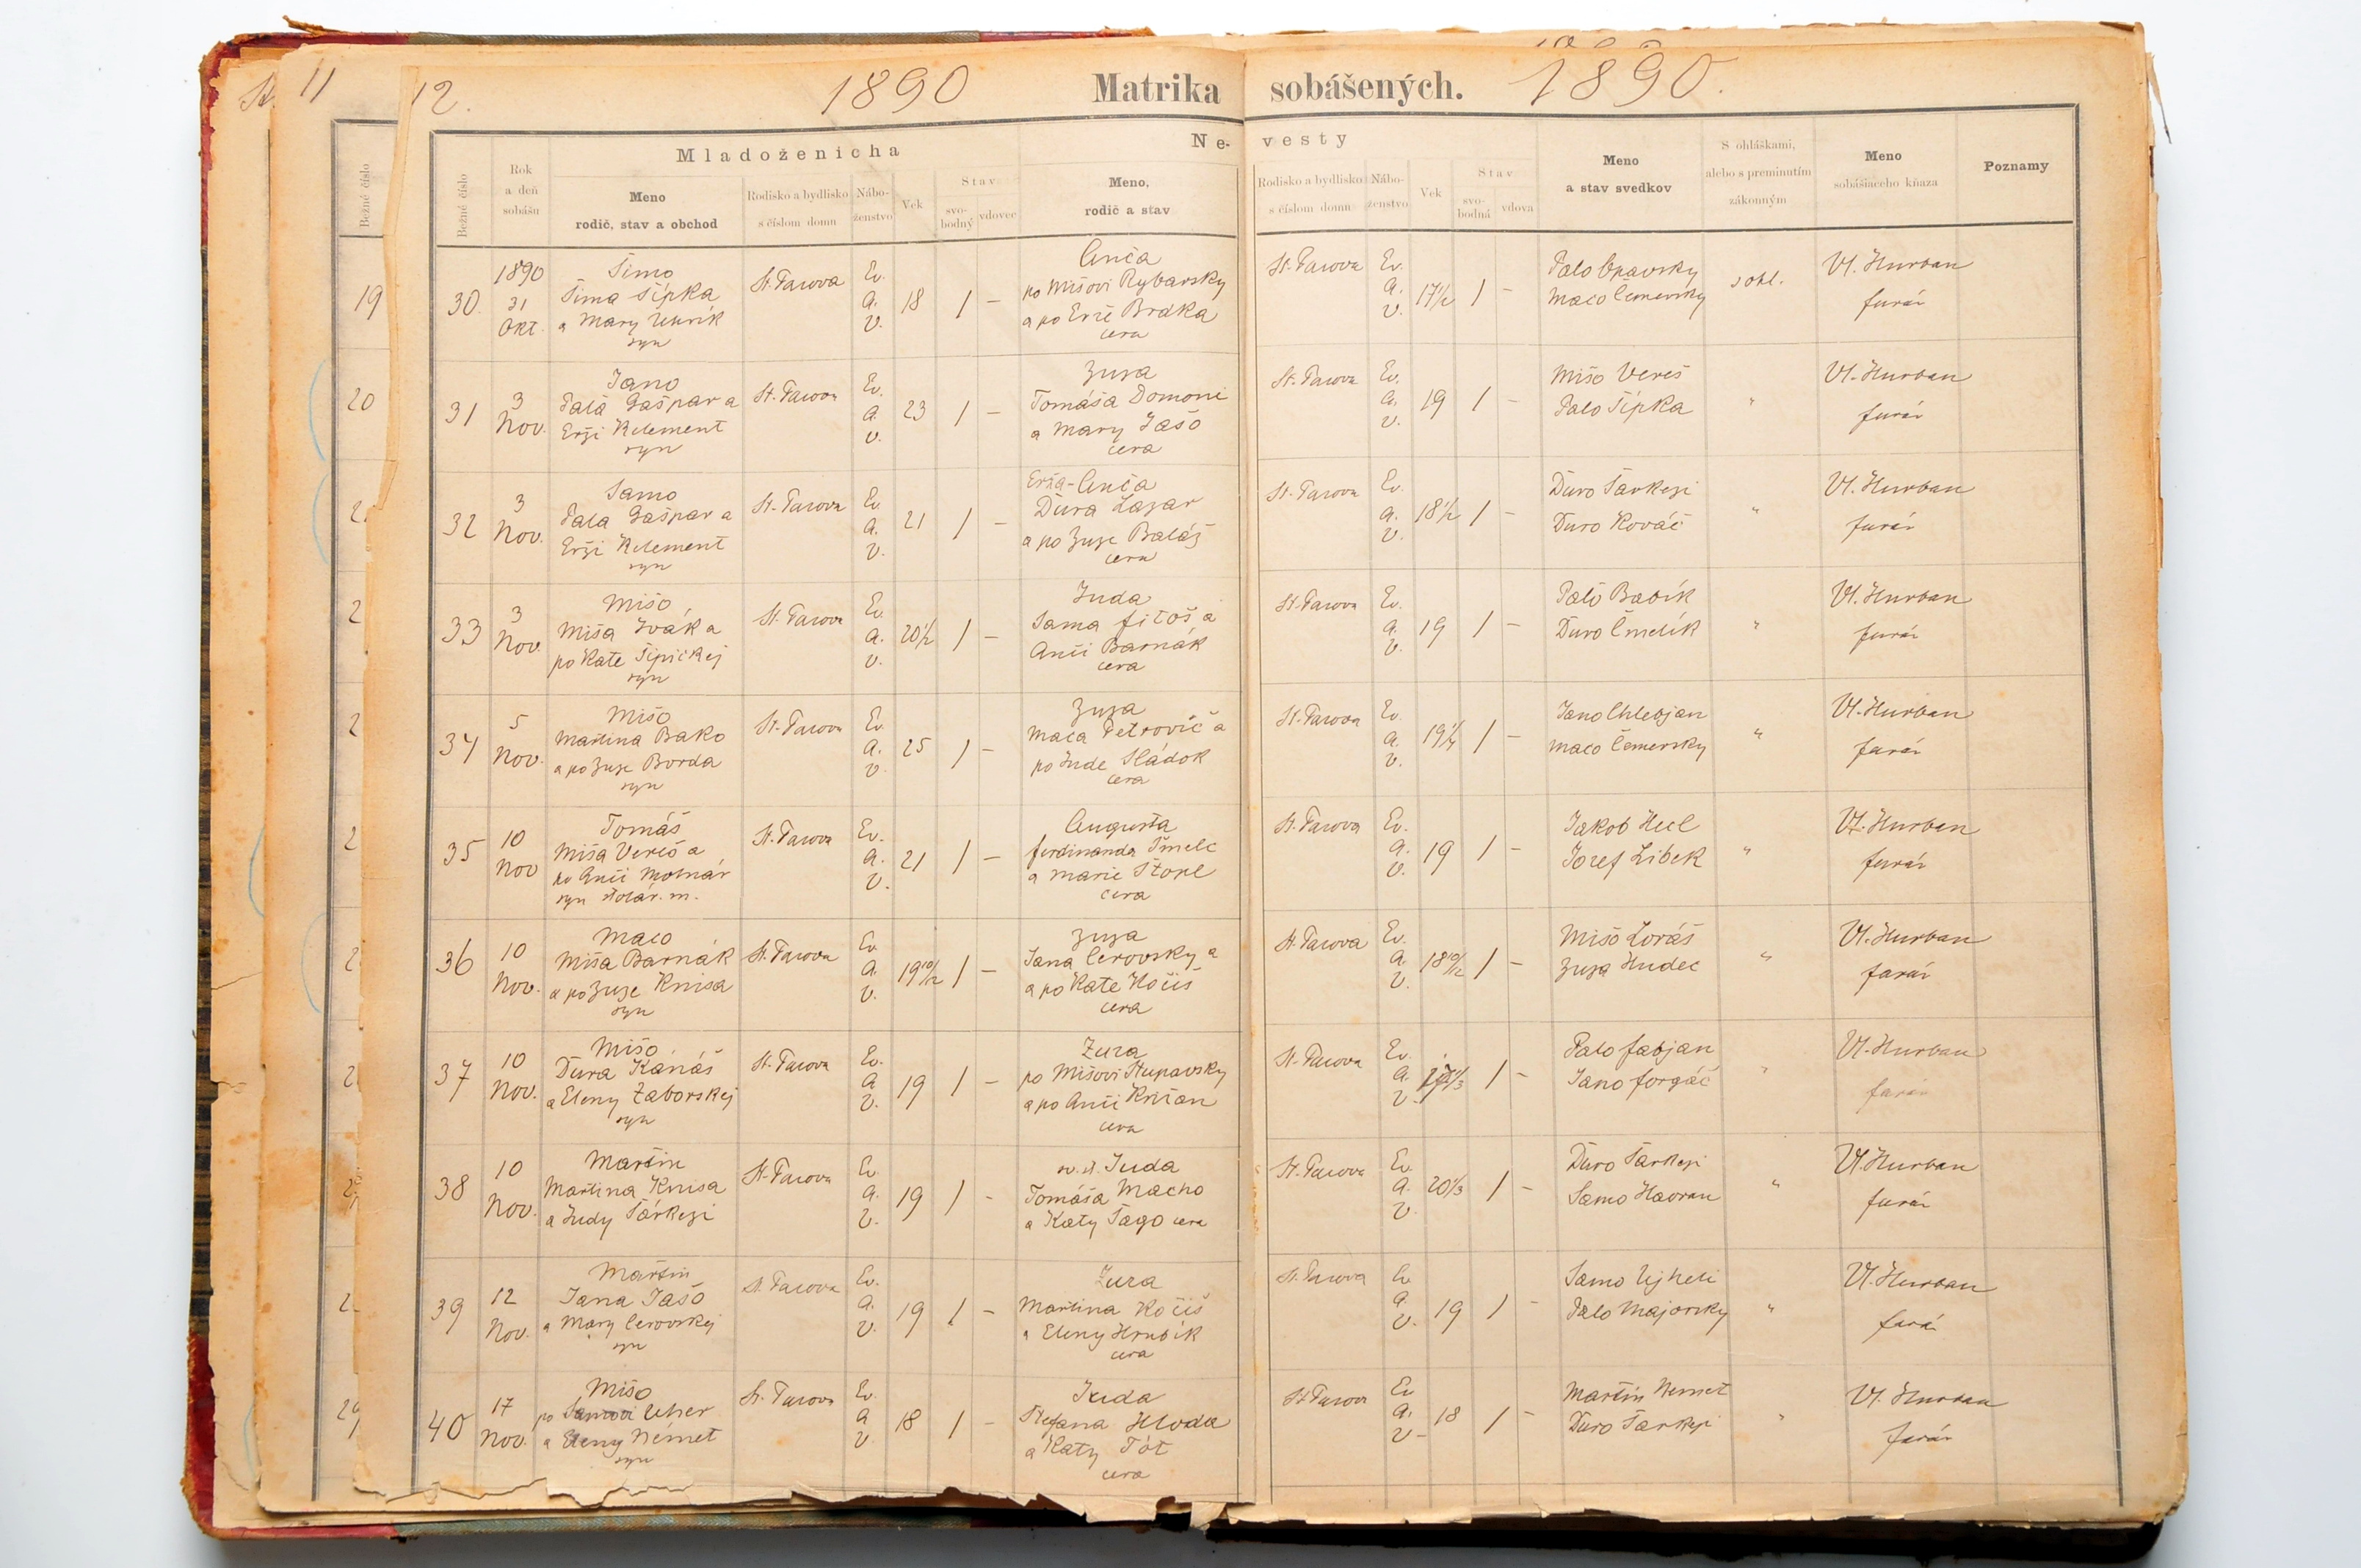 11
12.
1890
Matrika sobášených.
1890.
Bežné číslo
Bežné číslo
Rok a deň sobášu
Mladoženicha
Meno
rodič, stav a obchod
Rodisko a bydlisko
s číslom domu
Nábo-
ženstvo
Vek
Stav
svo-
bodný
vdovec
Ne-
vesty
Meno,
rodič a stav
Rodisko a bydlisko
s číslom domu
Nábo-
ženstvo
Vek
Stav
svo-
bodná
vdova
Meno
a stav svedkov
S ohláškami,
alebo s preminutím
zákonným
Meno
sobášiaceho kňaza
Poznamy
19
30.
1890
31
Okt.
Šimo
Šima Šípka
a Mary Uhrík
syn
St. Pazova
Ev.
a.
v.
18
/
-
Anča
po Mišovi Rybarsky
a po Erže Brdka
cera
St. Pazova
Ev.
a.
v.
17½
/
-
Palo Opavsky
Maco Čemersky
s ohl.
Vl. Hurban
farár
20
31
3
Nov.
Jano
Pala Gašpar a
Erži Kelement
syn
St. Pazova
Ev.
a.
v.
23
/
-
Zuza
Tomáša Domoni
a Mary Jašo
cera
St. Pazova
Ev.
a.
v.
19
/
-
Mišo Vereš
Palo Šípka
"
Vl. Hurban
farár
32
3
Nov.
Samo
Pala Gašpar a
Erži Kelement
syn
St. Pazova
Ev.
a.
v.
21
/
-
Erža-Anča
Ďura Lazar
a po Zuze Baláž
cera
St. Pazova
Ev.
a.
v.
18½
/
-
Ďuro Šarkezi
Ďuro Kováč
"
Vl. Hurban
farár
33
3
Nov.
Mišo
Miša Ivák a
po Kate Šipickej
syn
St. Pazova
Ev.
a.
v.
20½
/
-
Juda
Sama Filoš a
Anči Barnák
cera
St. Pazova
Ev.
a.
v.
19
/
-
Palo Babík
Ďuro Čmelík
"
Vl. Hurban
farár
34
5
Nov.
Mišo
Martina Bako
a po Zuze Borda
syn
St. Pazova
Ev.
a.
v.
25
/
-
Zuza
Maca Petrovič a
po Jude Sládok
cera
St. Pazova
Ev.
a.
v.
19¼
/
-
Jano Chlebjan
Maco Čemersky
"
Vl. Hurban
farár
35
10
Nov
Tomáš
Miša Vereš a
po Anči Molnár
syn stolár. m.
St. Pazova
Ev.
a.
v.
21
/
-
Augusta
Ferdinanda Šmelc
a Marie Štopl
cera
St. Pazova
Ev.
a.
v.
19
/
-
Jakob Hul
Jozef Libek
"
Vl. Hurban
farár
36
10
Nov.
Maco
Miša Barnák
a po Zuze Knisa
syn
St. Pazova
Ev.
a.
v.
19 10/12
/
-
Zuza
Jana Cerovsky a
a po Kate Kočiš
cera
St. Pazova
Ev.
a.
v.
18 10/12
/
-
Mišo Loráš
Zuza Hudec
"
Vl. Hurban
farár
37
10
Nov.
Mišo
Ďura Kanáš
a Eleny Zaborskej
syn
St. Pazova
Ev.
a
v.
19
/
-
Zura
po Mišovi Stupavsky
a po Anči Križan
cera
St. Pazova
Ev.
a.
v.
/
-
Palo Fabjan
Jano Forgáč
"
Vl. Hurban
farár
38
10
Nov.
Martin
Martina Knisa
a Judy Šarkezi
St. Pazova
Ev.
a.
v.
19
/
-
Juda
Tomáša Macho
a Katy Šago cera
St. Pazova
Ev.
a.
v.
20⅓
/
-
Ďuro Šarkezi
Samo Havran
"
Vl. Hurban
farár
39
12
Nov.
Martin
Jana Jašo
a Mary Cerovskej
syn
St. Pazova
Ev.
a.
v.
19
/
-
Zura
Martina Kočiš
a Eleny Hrubík
cera
St. Pazova
Ev
a
v.
19
/
-
Samo Ujheli
Palo Majorsky
"
Vl. Hurban
farár
40
17
Nov.
Mišo
po Samovi Uher
a Eleny Német
syn
St. Pazova
Ev.
a
v
18
/
-
Juda
Štefana Hloda
a Katy Tót
cera
St. Pazova
Ev
a.
v
18
/
-
Martin Nemet
Ďuro Šarkezi
"
Vl. Hurban
farár